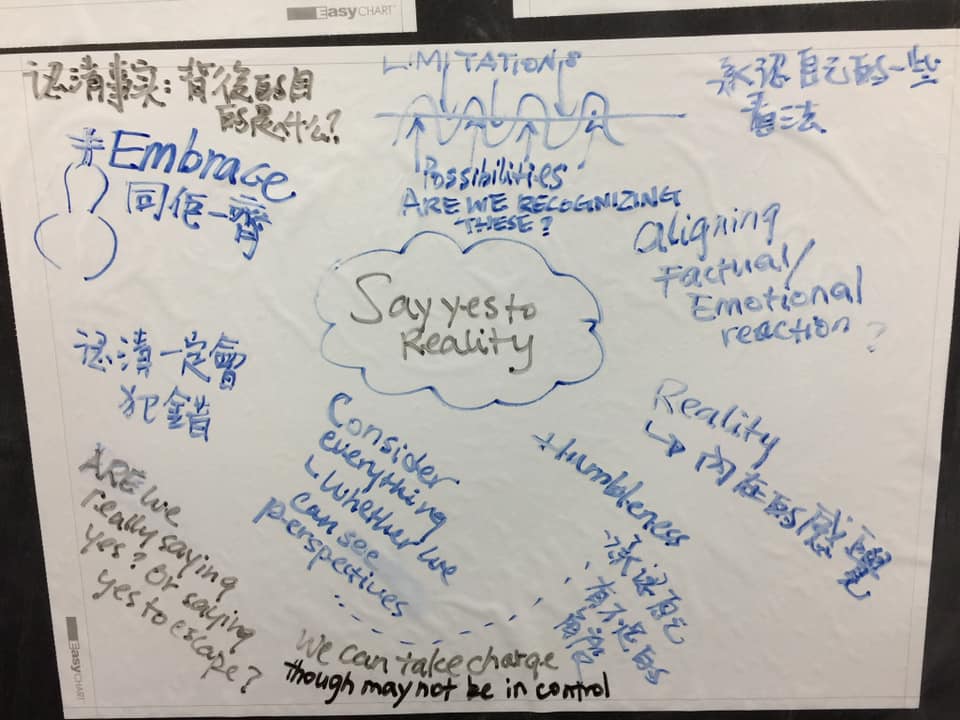 EasyCHART
認清事实:背後的目
的是什么?
# Embrace
同佢一齊
LIMITATIONS
Possibilities
ARE WE RECOGNIZING
THESE?
承認自己的一些
看法
aligning
Factual/
Emotional
reaction?
Say yes to
Reality
認清一定會
犯錯
Reality
↳ 内在的感覺
Consider
everything
↳ Whether we
can see
perspectives
Humbleness
承认自己
有不足的
ARE we
really saying
yes? Or saying
yes to escape?
We can take charge
though may not be in control
EasyCHART